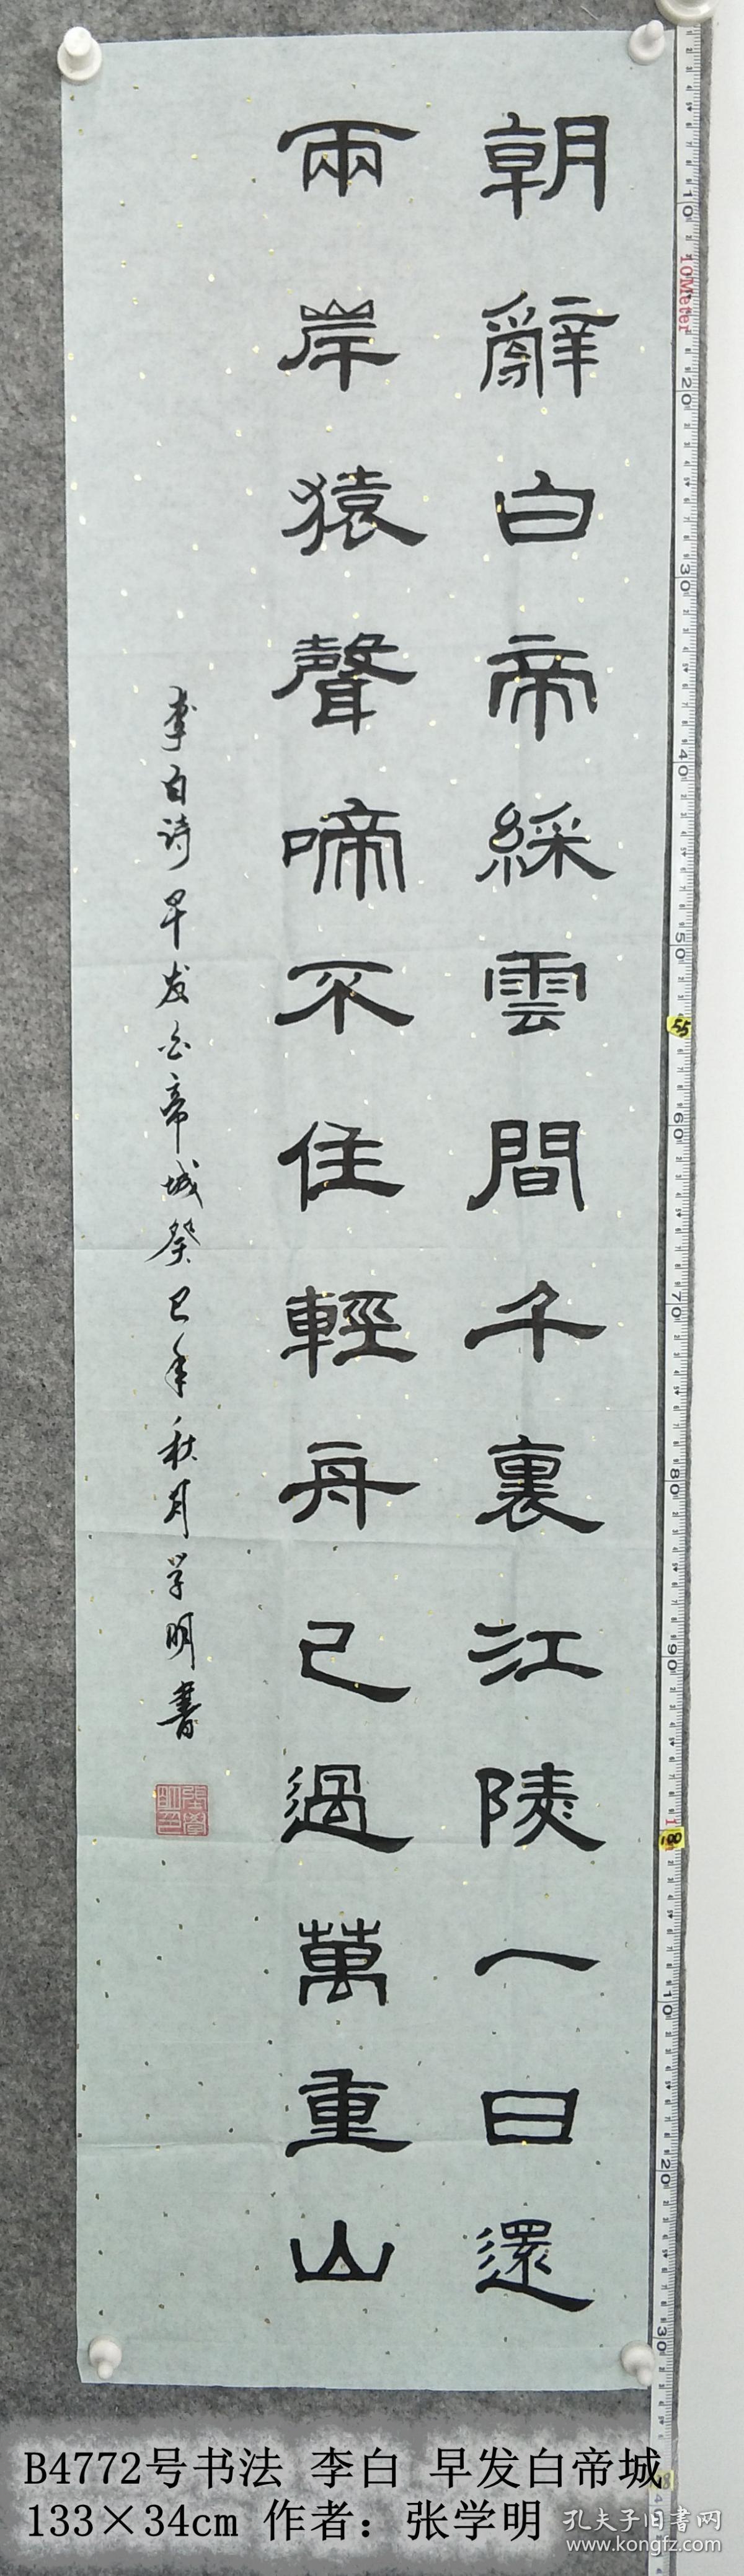 朝辭白帝綵雲間千裏江陵一日還
兩岸猿聲啼不住輕舟已過萬重山
李白诗早发白帝城癸巳年秋月学明書
10Meter
10
20
30
40
50
55
60
70
80
90
100
10
20
30
B4772号书法 李白 早发白帝城
133×34cm 作者：张学明
孔夫子旧書网
www.kongfz.com